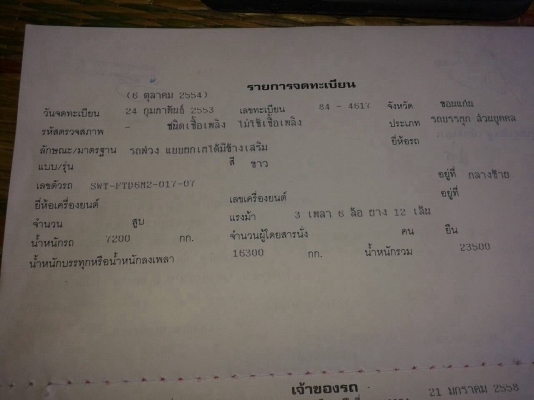 รายการจดทะเบียน
(6 ตุลาคม 2554)
วันจดทะเบียน 24 กุมภาพันธ์ 2553 เลขทะเบียน 84 - 4617 จังหวัด ขอนแก่น
รหัสตรวจสภาพ - ชนิดเชื้อเพลิง ไม่ใช้เชื้อเพลิง ประเภท รถบรรทุก ส่วนบุคคล
ลักษณะ/มาตรฐาน รถพ่วง แบบยกเทได้มีข้างเสริม ยี่ห้อรถ
แบบ/รุ่น สี ขาว
เลขตัวรถ SWT-FTD6M2-017-07 อยู่ที่ กลางซ้าย
ยี่ห้อเครื่องยนต์ เลขเครื่องยนต์ อยู่ที่
จำนวน สูบ แรงม้า 3 เพลา 6 ล้อ ยาง 12 เส้น
น้ำหนักรถ 7200 กก. จำนวนผู้โดยสารนั่ง คน ยืน
น้ำหนักบรรทุกหรือน้ำหนักลงเพลา 16300 กก. น้ำหนักรวม 23500
เจ้าของรถ
21 มกราคม 2558